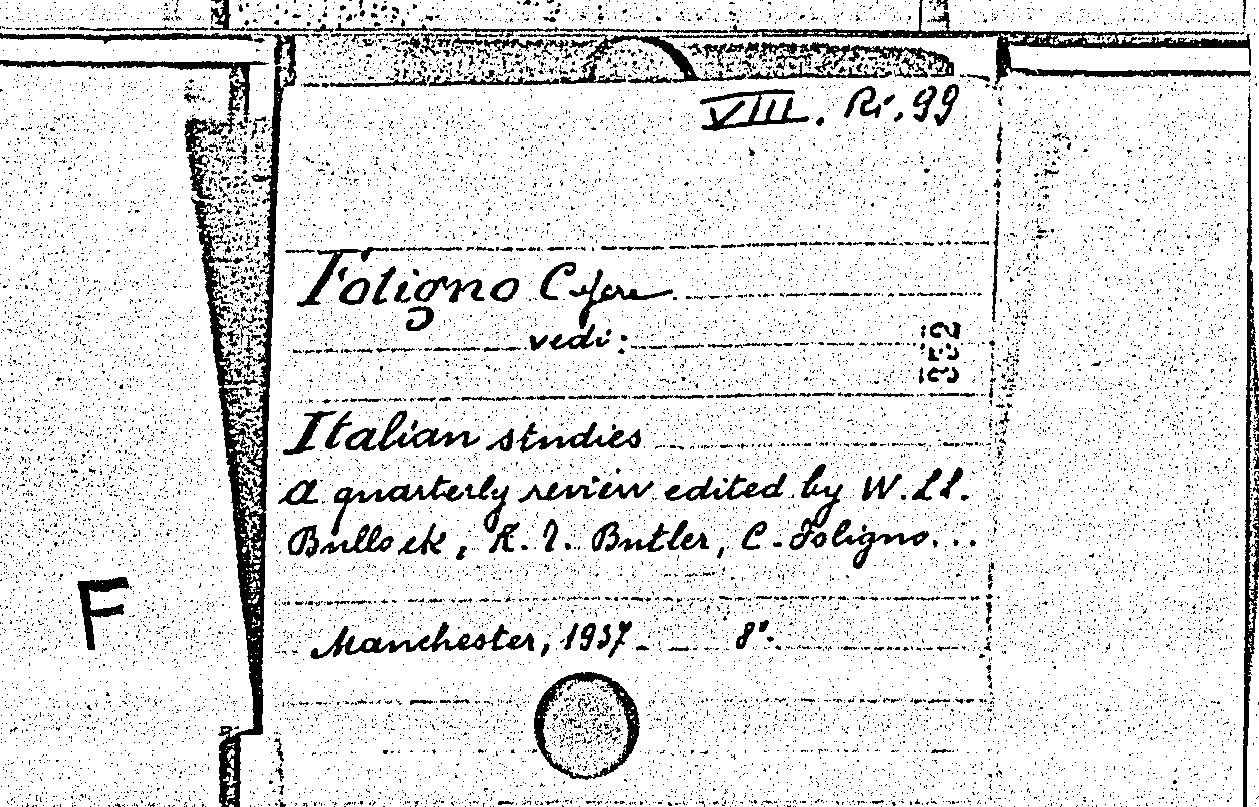 VIII. Ri. 99
Foligno Cesare
vedi:
352
Italian studies
a quarterly review edited by W. Ll.
Bullock, K. T. Butler, C. Foligno...
F
Manchester, 1937 8°.